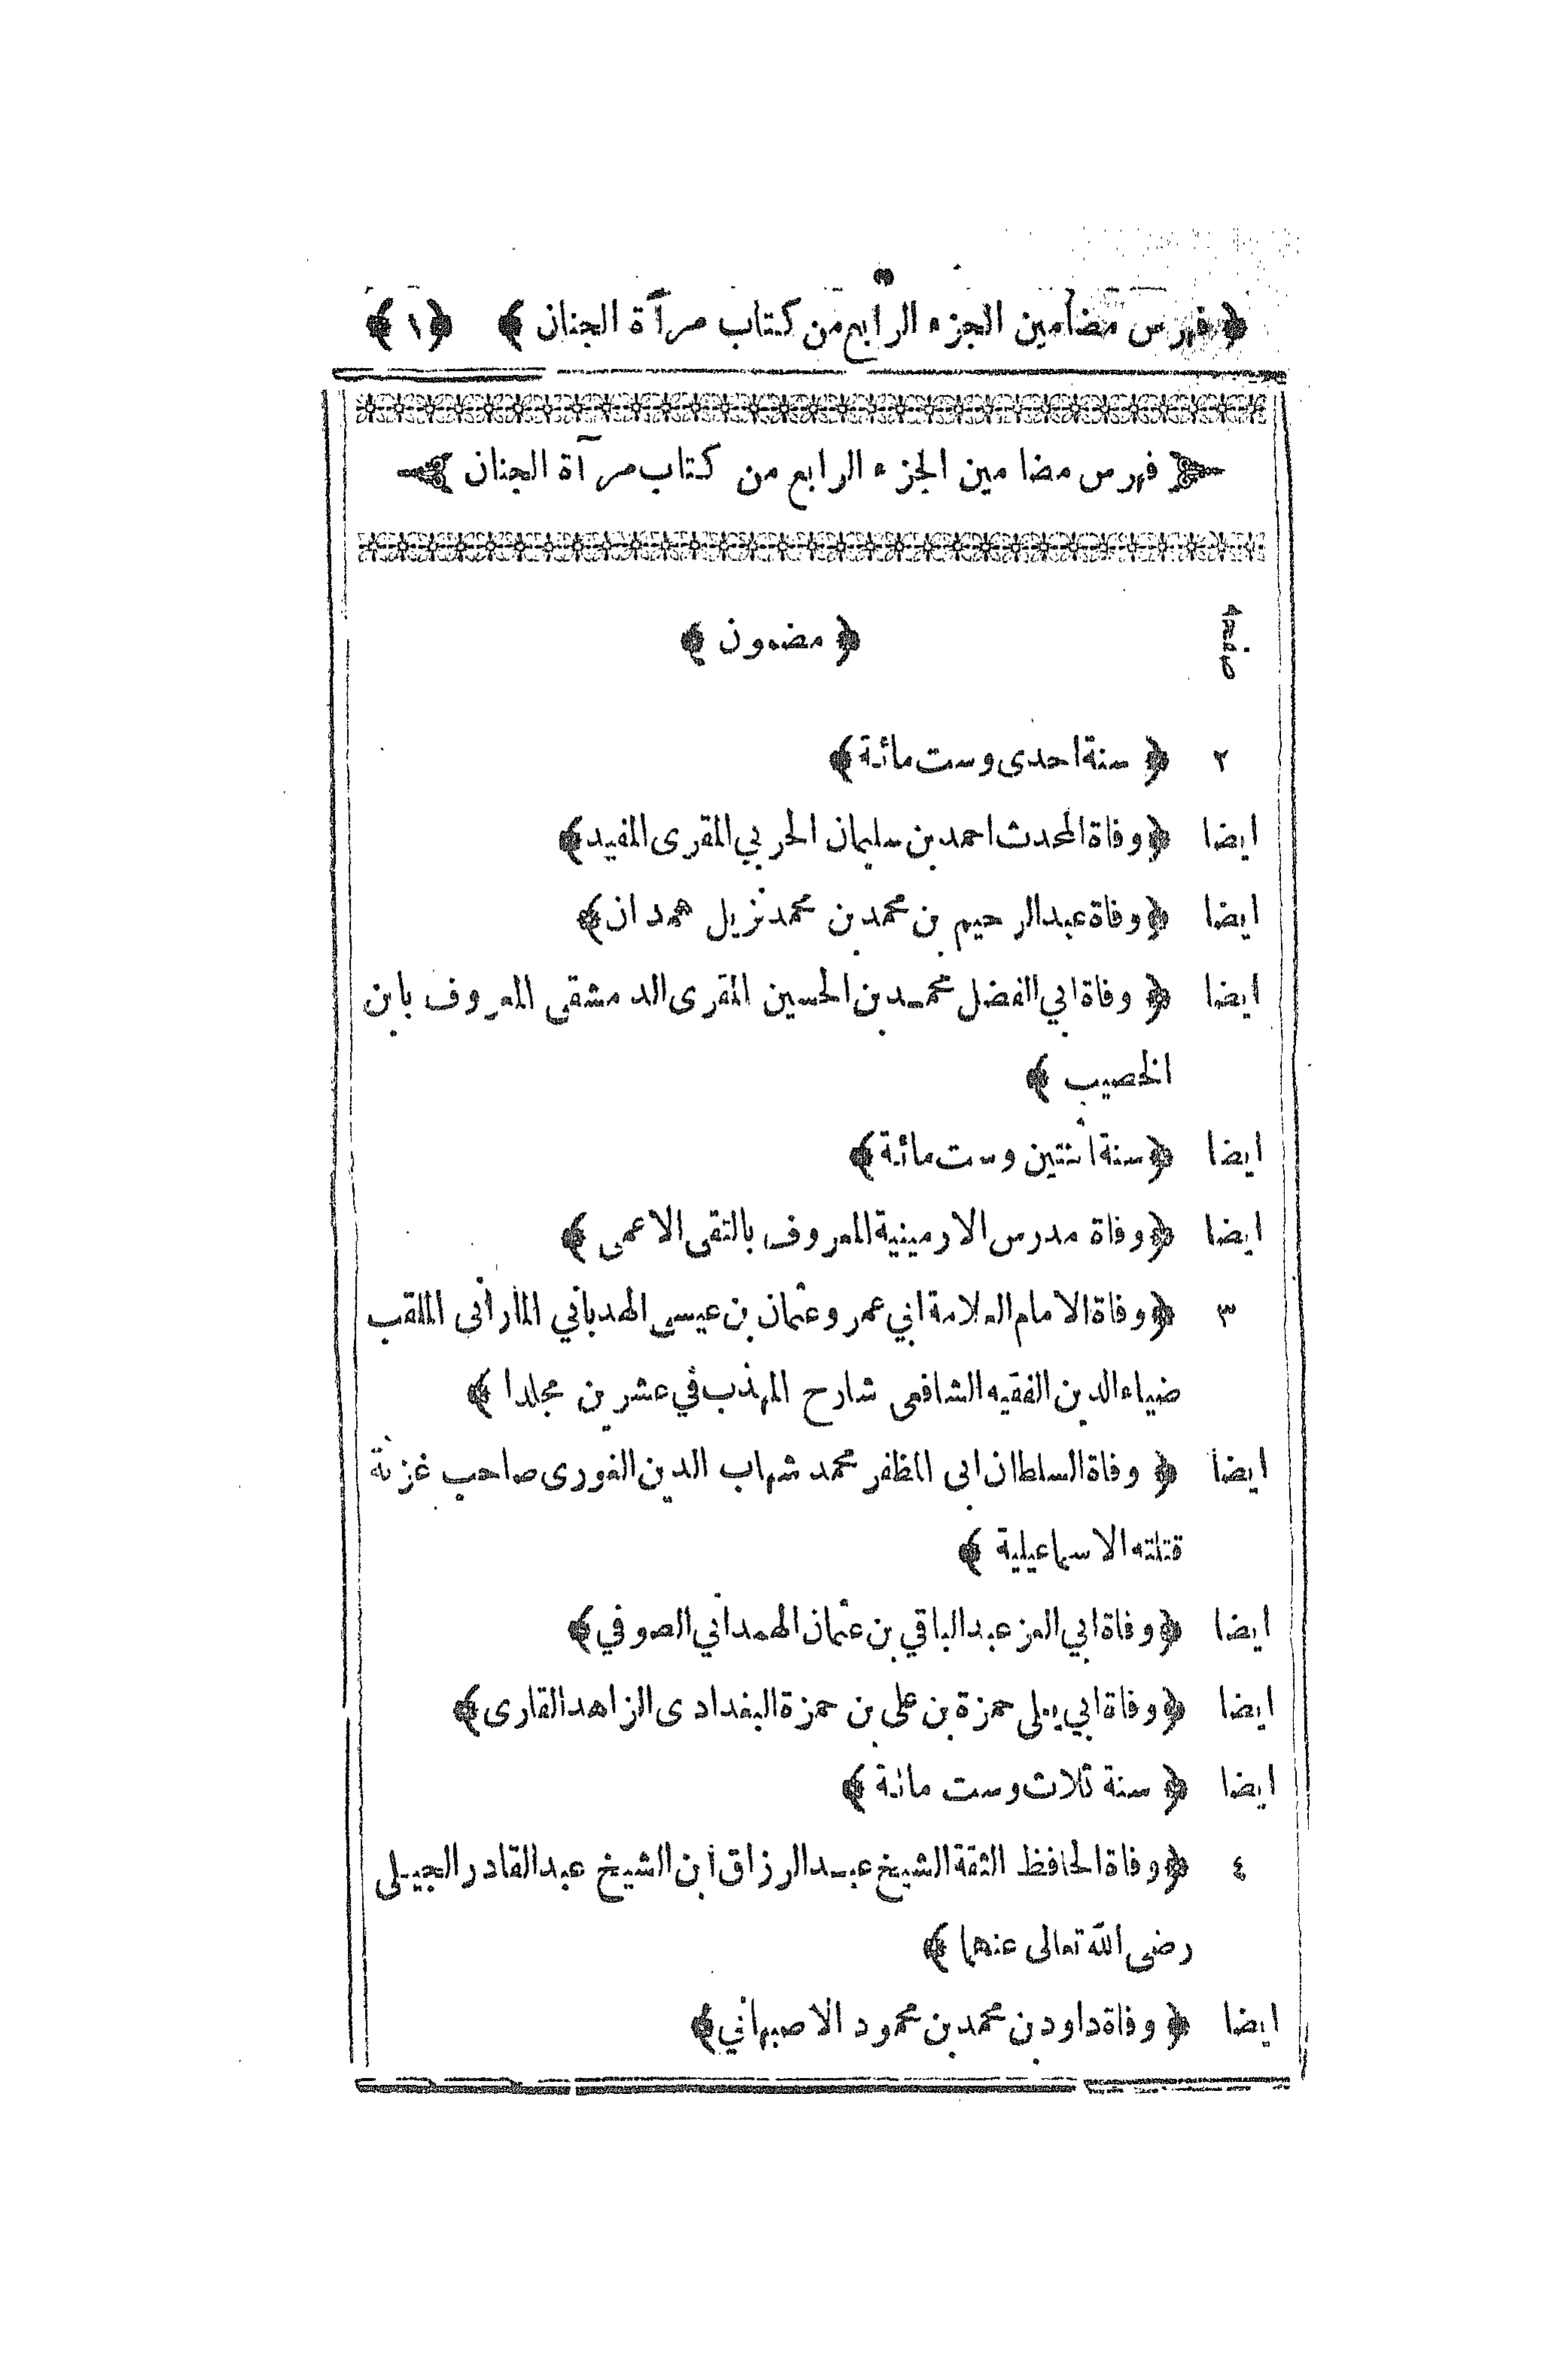 ﴿ فهرس مضامين الجزء الرابع من كتاب مرآة الجنان ﴾ ﴿ ١ ﴾
﴿ فهرس مضامين الجزء الرابع من كتاب مرآة الجنان ﴾
صفحه ﴿ مضمون ﴾
٢ ﴿ سنة احدى وست مائة ﴾
ايضا ﴿ وفاة المحدث احمد بن سليمان الحربي المقرى المفيد ﴾
ايضا ﴿ وفاة عبد الرحيم بن محمد بن محمد نزيل همدان ﴾
ايضا ﴿ وفاة ابي الفضل محمد بن الحسين المقرى الدمشقى المعروف بابن
الخصيب ﴾
ايضا ﴿ سنة اثنتين وست مائة ﴾
ايضا ﴿ وفاة مدرس الارمينية المعروف بالتقى الاعمى ﴾
٣ ﴿ وفاة الامام العلامة ابي عمر وعثمان بن عيسى الهدباني المارانى الملقب
ضياء الدين الفقيه الشافعى شارح المهذب في عشرين مجلدا ﴾
ايضا ﴿ وفاة السلطان ابى المظفر محمد شهاب الدين الغورى صاحب غزنة
قتلته الاسماعيلية ﴾
ايضا ﴿ وفاة ابي العز عبد الباقي بن عثمان الهمداني الصوفي ﴾
ايضا ﴿ وفاة ابي يعلى حمزة بن على بن حمزة البغدادى الزاهد القارى ﴾
ايضا ﴿ سنة ثلاث وست مائة ﴾
٤ ﴿ وفاة الحافظ الثقة الشيخ عبد الرزاق ابن الشيخ عبد القادر الجيلى
رضى الله تعالى عنهما ﴾
ايضا ﴿ وفاة داود بن محمد بن محمود الاصبهاني ﴾